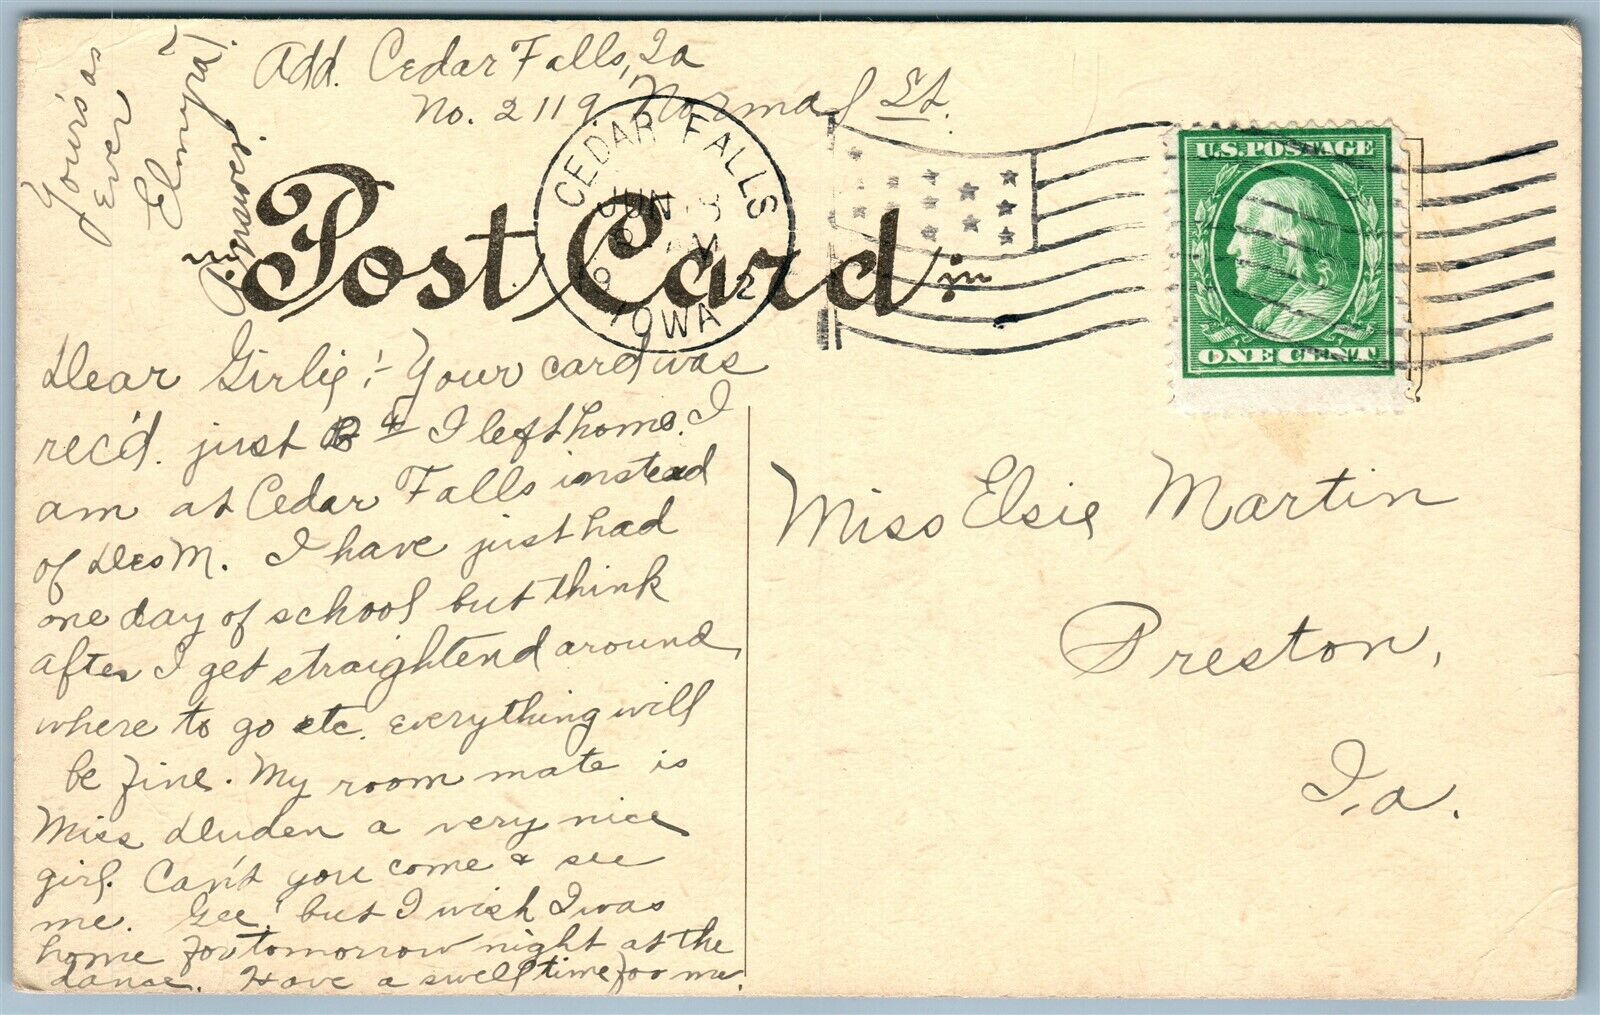 Add. Cedar Falls, Ia
No. 2119 Normal St.
Yours as
Ever
Elmyra
Answer!
Post Card
CEDAR FALLS
JUN
AM
1912
IOWA
U.S. POSTAGE
ONE CENT
Dear Girlie:- Your card was
rec'd. just B4 I left home. I
am at Cedar Falls instead
of Des M. I have just had
one day of school but think
after I get straightend around,
where to go etc. everything will
be fine. My room mate is
Miss Duden a very nice
girl. Can't you come & see
me. Gee! but I wish I was
home for tomorrow night at the
dance. Have a swell time for me.
Miss Elsie Martin
Preston,
Ia.